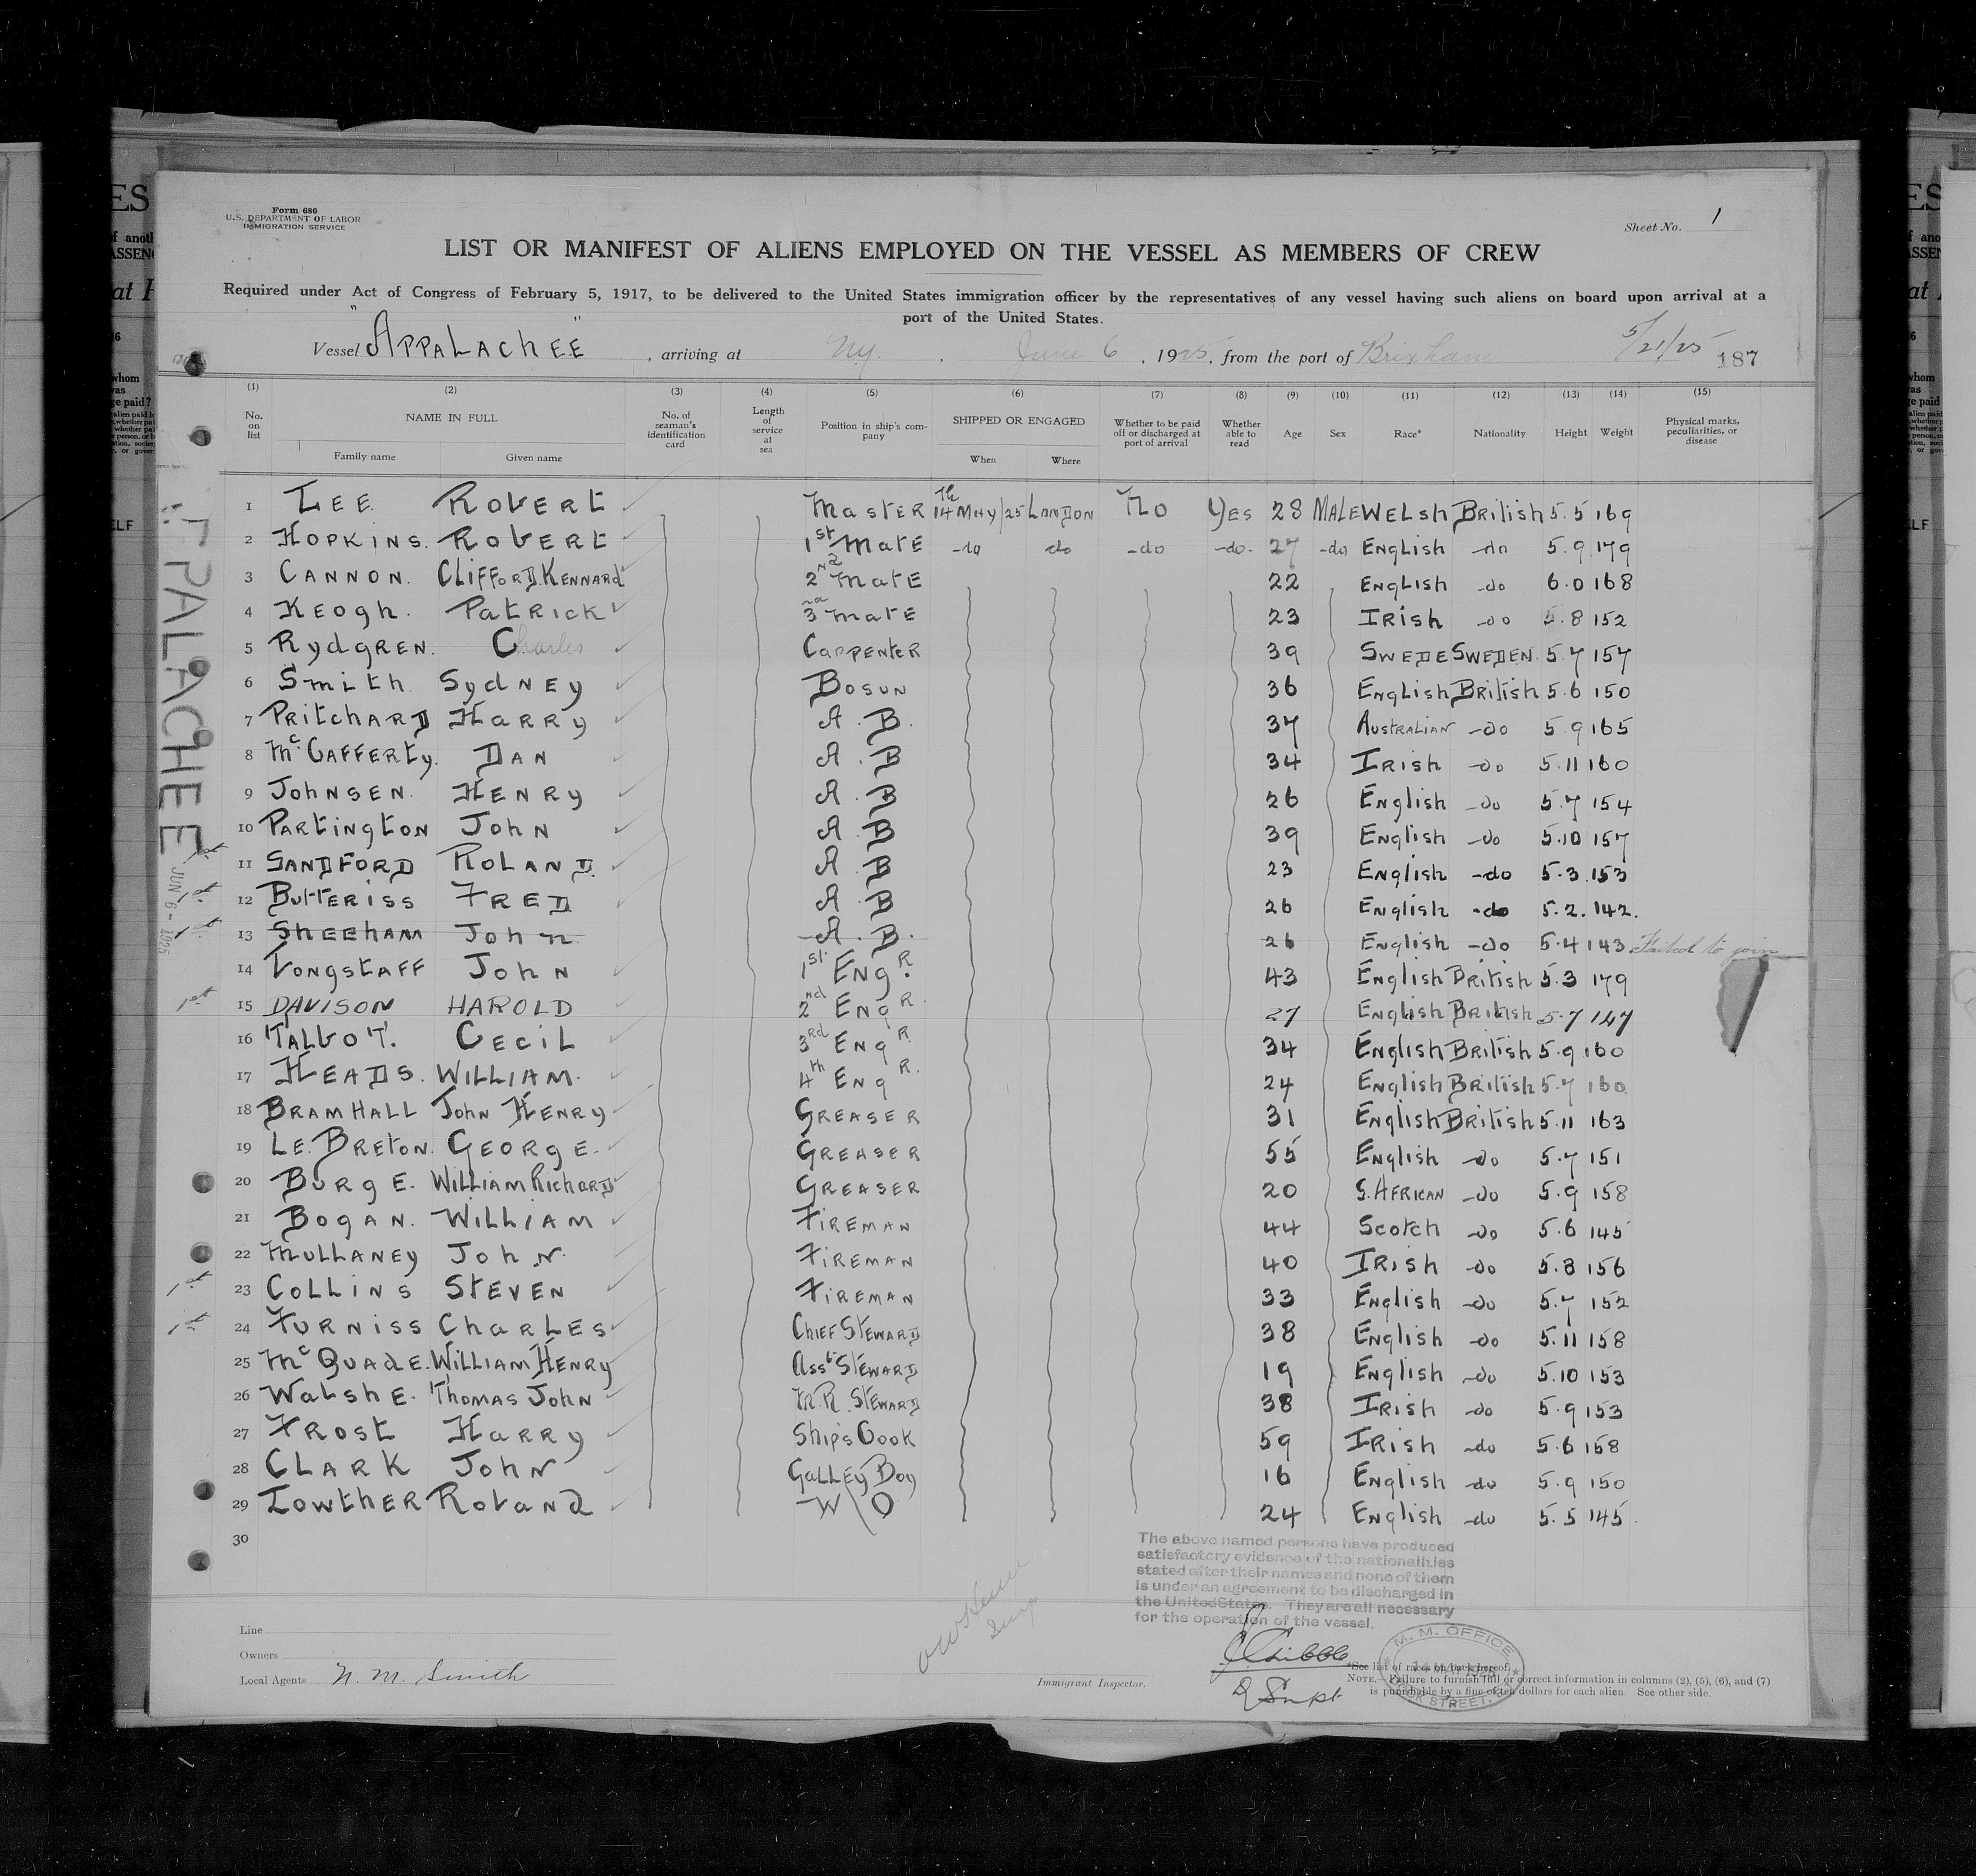 Form 680
U.S. DEPARTMENT OF LABOR
IMMIGRATION SERVICE
Sheet No. 1
LIST OR MANIFEST OF ALIENS EMPLOYED ON THE VESSEL AS MEMBERS OF CREW
Required under Act of Congress of February 5, 1917, to be delivered to the United States immigration officer by the representatives of any vessel having such aliens on board upon arrival at a
port of the United States.
Vessel "APPALACHEE", arriving at Ny., June 6, 1925, from the port of Brixham 5/21/25 187
(1) (2) (3) (4) (5) (6) (7) (8) (9) (10) (11) (12) (13) (14) (15)
No. on list NAME IN FULL Family name Given name No. of seaman's identification card Length of service at sea Position in ship's company SHIPPED OR ENGAGED When Where Whether to be paid off or discharged at port of arrival Whether able to read Age Sex Race* Nationality Height Weight Physical marks, peculiarities, or disease
1 LEE ROBERT MASTER 14th MAY/25 LONDON No YES 28 MALE WELSH British 5.5 169
2 HOPKINS. ROBERT 1st MATE -do do -do -do- 27 -do ENGLISH -do 5.9 179
3 CANNON. CLIFFORD.KENNARD 2nd MATE 22 ENGLISH -do 6.0 168
4 KEOGH. PATRICK 3 MATE 23 IRISH -do 5.8 152
5 RYDGREN. Charles CARPENTER 39 SWEDE SWEDEN. 5.7 157
6 SMITH SYDNEY BOSUN 36 ENGLISH BRITISH 5.6 150
7 PRITCHARD HARRY A.B. 37 AUSTRALIAN -do 5.9 165
8 McCAFFERTY. DAN A.B 34 IRISH -do 5.11 160
9 JOHNSEN. HENRY A.B 26 ENGLISH -do 5.7 154
10 PARTINGTON JOHN A.B 39 ENGLISH -do 5.10 157
11 SANDFORD ROLAND. A.B 23 ENGLISH -do 5.3 153
12 BUTTERISS FRED A.B 26 ENGLISH -do 5.2. 142.
13 SHEEHAM JOHN A.B. 26 ENGLISH -do 5.4 143 Failed to join
14 LONGSTAFF JOHN 1st ENGR. 43 ENGLISH BRITISH 5.3 179
1st 15 DAVISON HAROLD 2nd ENGR. 27 ENGLISH BRITISH 5.7 147
16 TALBOT. CECIL 3rd ENGR 34 ENGLISH BRITISH 5.9 160
17 HEADS. WILLIAM. 4th ENGR. 24 ENGLISH BRITISH 5.7 160
18 BRAMHALL JOHN HENRY GREASER 31 ENGLISH BRITISH 5.11 163
19 LE.BRETON. GEORGE. GREASER 55 ENGLISH -do 5.7 151
20 BURGE. WILLIAM RICHARD GREASER 20 S.AFRICAN -do 5.9 158
21 BOGAN. WILLIAM FIREMAN 44 SCOTCH -do 5.6 145
22 MULLANEY JOHN. FIREMAN 40 IRISH -do 5.8 156
23 COLLINS STEVEN FIREMAN 33 ENGLISH -do 5.7 152
24 FURNISS CHARLES CHIEF STEWARD 38 ENGLISH -do 5.11 158
25 McQUADE. WILLIAM HENRY ASST STEWARD 19 ENGLISH -do 5.10 153
26 WALSHE. THOMAS JOHN M.R. STEWARD 38 IRISH -do 5.9 153
27 FROST HARRY SHIPS COOK 59 IRISH -do 5.6 158
28 CLARK JOHN GALLEY BOY 16 ENGLISH -do 5.9 150
29 LOWTHER ROLAND W/O 24 ENGLISH -do 5.5 145
30
The above named persons have produced
satisfactory evidence of the nationalities
stated after their names and none of them
is under an agreement to be discharged in
the United States. They are all necessary
for the operation of the vessel.
Line
Owners
Local Agents N. M. Smith
Immigrant Inspector.
D Supt.
M. M. OFFICE
*See list of races on back hereof.
NOTE.—Failure to furnish full or correct information in columns (2), (5), (6), and (7)
is punishable by a fine of ten dollars for each alien. See other side.
JUN 6 - 1925